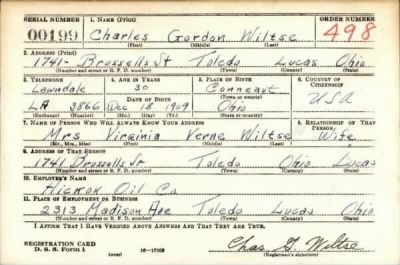 SERIAL NUMBER 1. NAME (Print) ORDER NUMBER
00199 Charles Gordon Wiltse 498
(First) (Middle) (Last)
2. ADDRESS (Print)
1741- Brussells St Toledo Lucas Ohio
(Number and street or R. F. D. number) (Town) (County) (State)
3. TELEPHONE 4. AGE IN YEARS 5. PLACE OF BIRTH 6. COUNTRY OF CITIZENSHIP
Lawndale 30 Conneaut
(Exchange) DATE OF BIRTH (Town or county) USA
LA 3866 Dec 18 1909 Ohio
(Number) (Mo.) (Day) (Yr.) (State or country)
7. NAME OF PERSON WHO WILL ALWAYS KNOW YOUR ADDRESS 8. RELATIONSHIP OF THAT PERSON
Mrs Virginia Verne Wiltse Wife
(Mr., Mrs., Miss) (First) (Middle) (Last)
9. ADDRESS OF THAT PERSON
1741 Brussells St Toledo Ohio Lucas
(Number and street or R. F. D. number) (Town) (County) (State)
10. EMPLOYER'S NAME
Hickok Oil Co
11. PLACE OF EMPLOYMENT OR BUSINESS
2313 Madison Ave Toledo Lucas Ohio
(Number and street or R. F. D. number) (Town) (County) (State)
I AFFIRM THAT I HAVE VERIFIED ABOVE ANSWERS AND THAT THEY ARE TRUE.
REGISTRATION CARD
D. S. S. Form 1 (over) 16-17105 Chas G. Wiltse
(Registrant's signature)